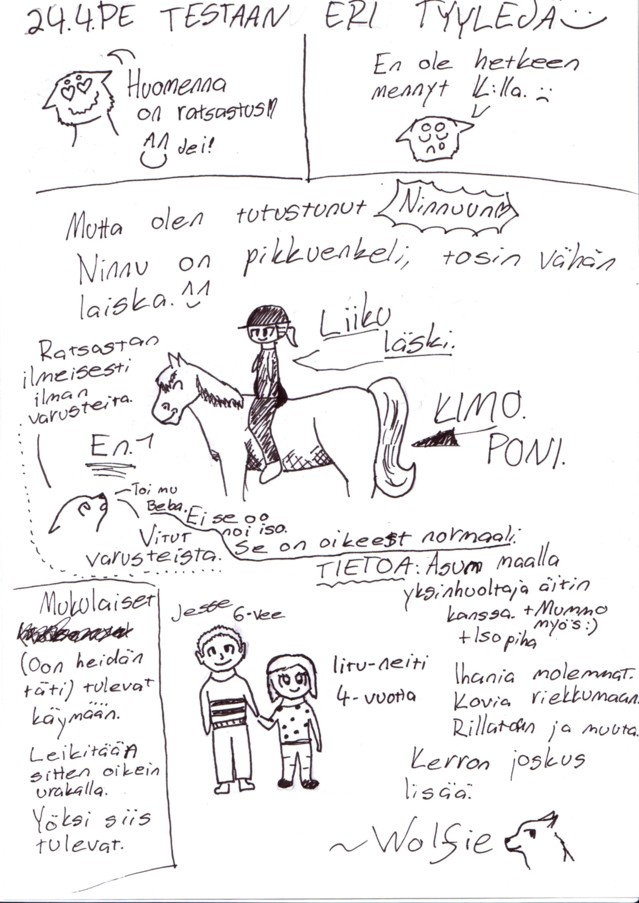 24.4.PE TESTAAN ERI TYYLEJÄ
Huomenna
on ratsastus!!
^^ Jei!
En ole hetkeen
mennyt K:lla. :(
Mutta olen tutustunut Ninnuun♡
Ninnu on pikkuenkeli, tosin vähän
laiska. ^^
Liiku
läski.
Ratsastan
ilmeisesti
ilman
varusteita.
En.
KIMO.
PONI.
Toi mu
Beba. Ei se oo
noi iso.
Se on oikeest normaali.
Vitut
varusteista.
TIETOA: Asun maalla
yksinhuoltaja äitin
kanssa. + Mummo
myös :)
+ Iso piha
Mukulaiset
(Oon heidän
täti) tulevat
käymään.
Leikitään
sitten oikein
urakalla.
Yöksi siis
tulevat.
Jesse 6-vee
Iitu-neiti
4-vuotta
Ihania molemmat.
Kovia riekkumaan.
Rillataan ja muuta.
Kerron joskus
lisää.
~Wolfie